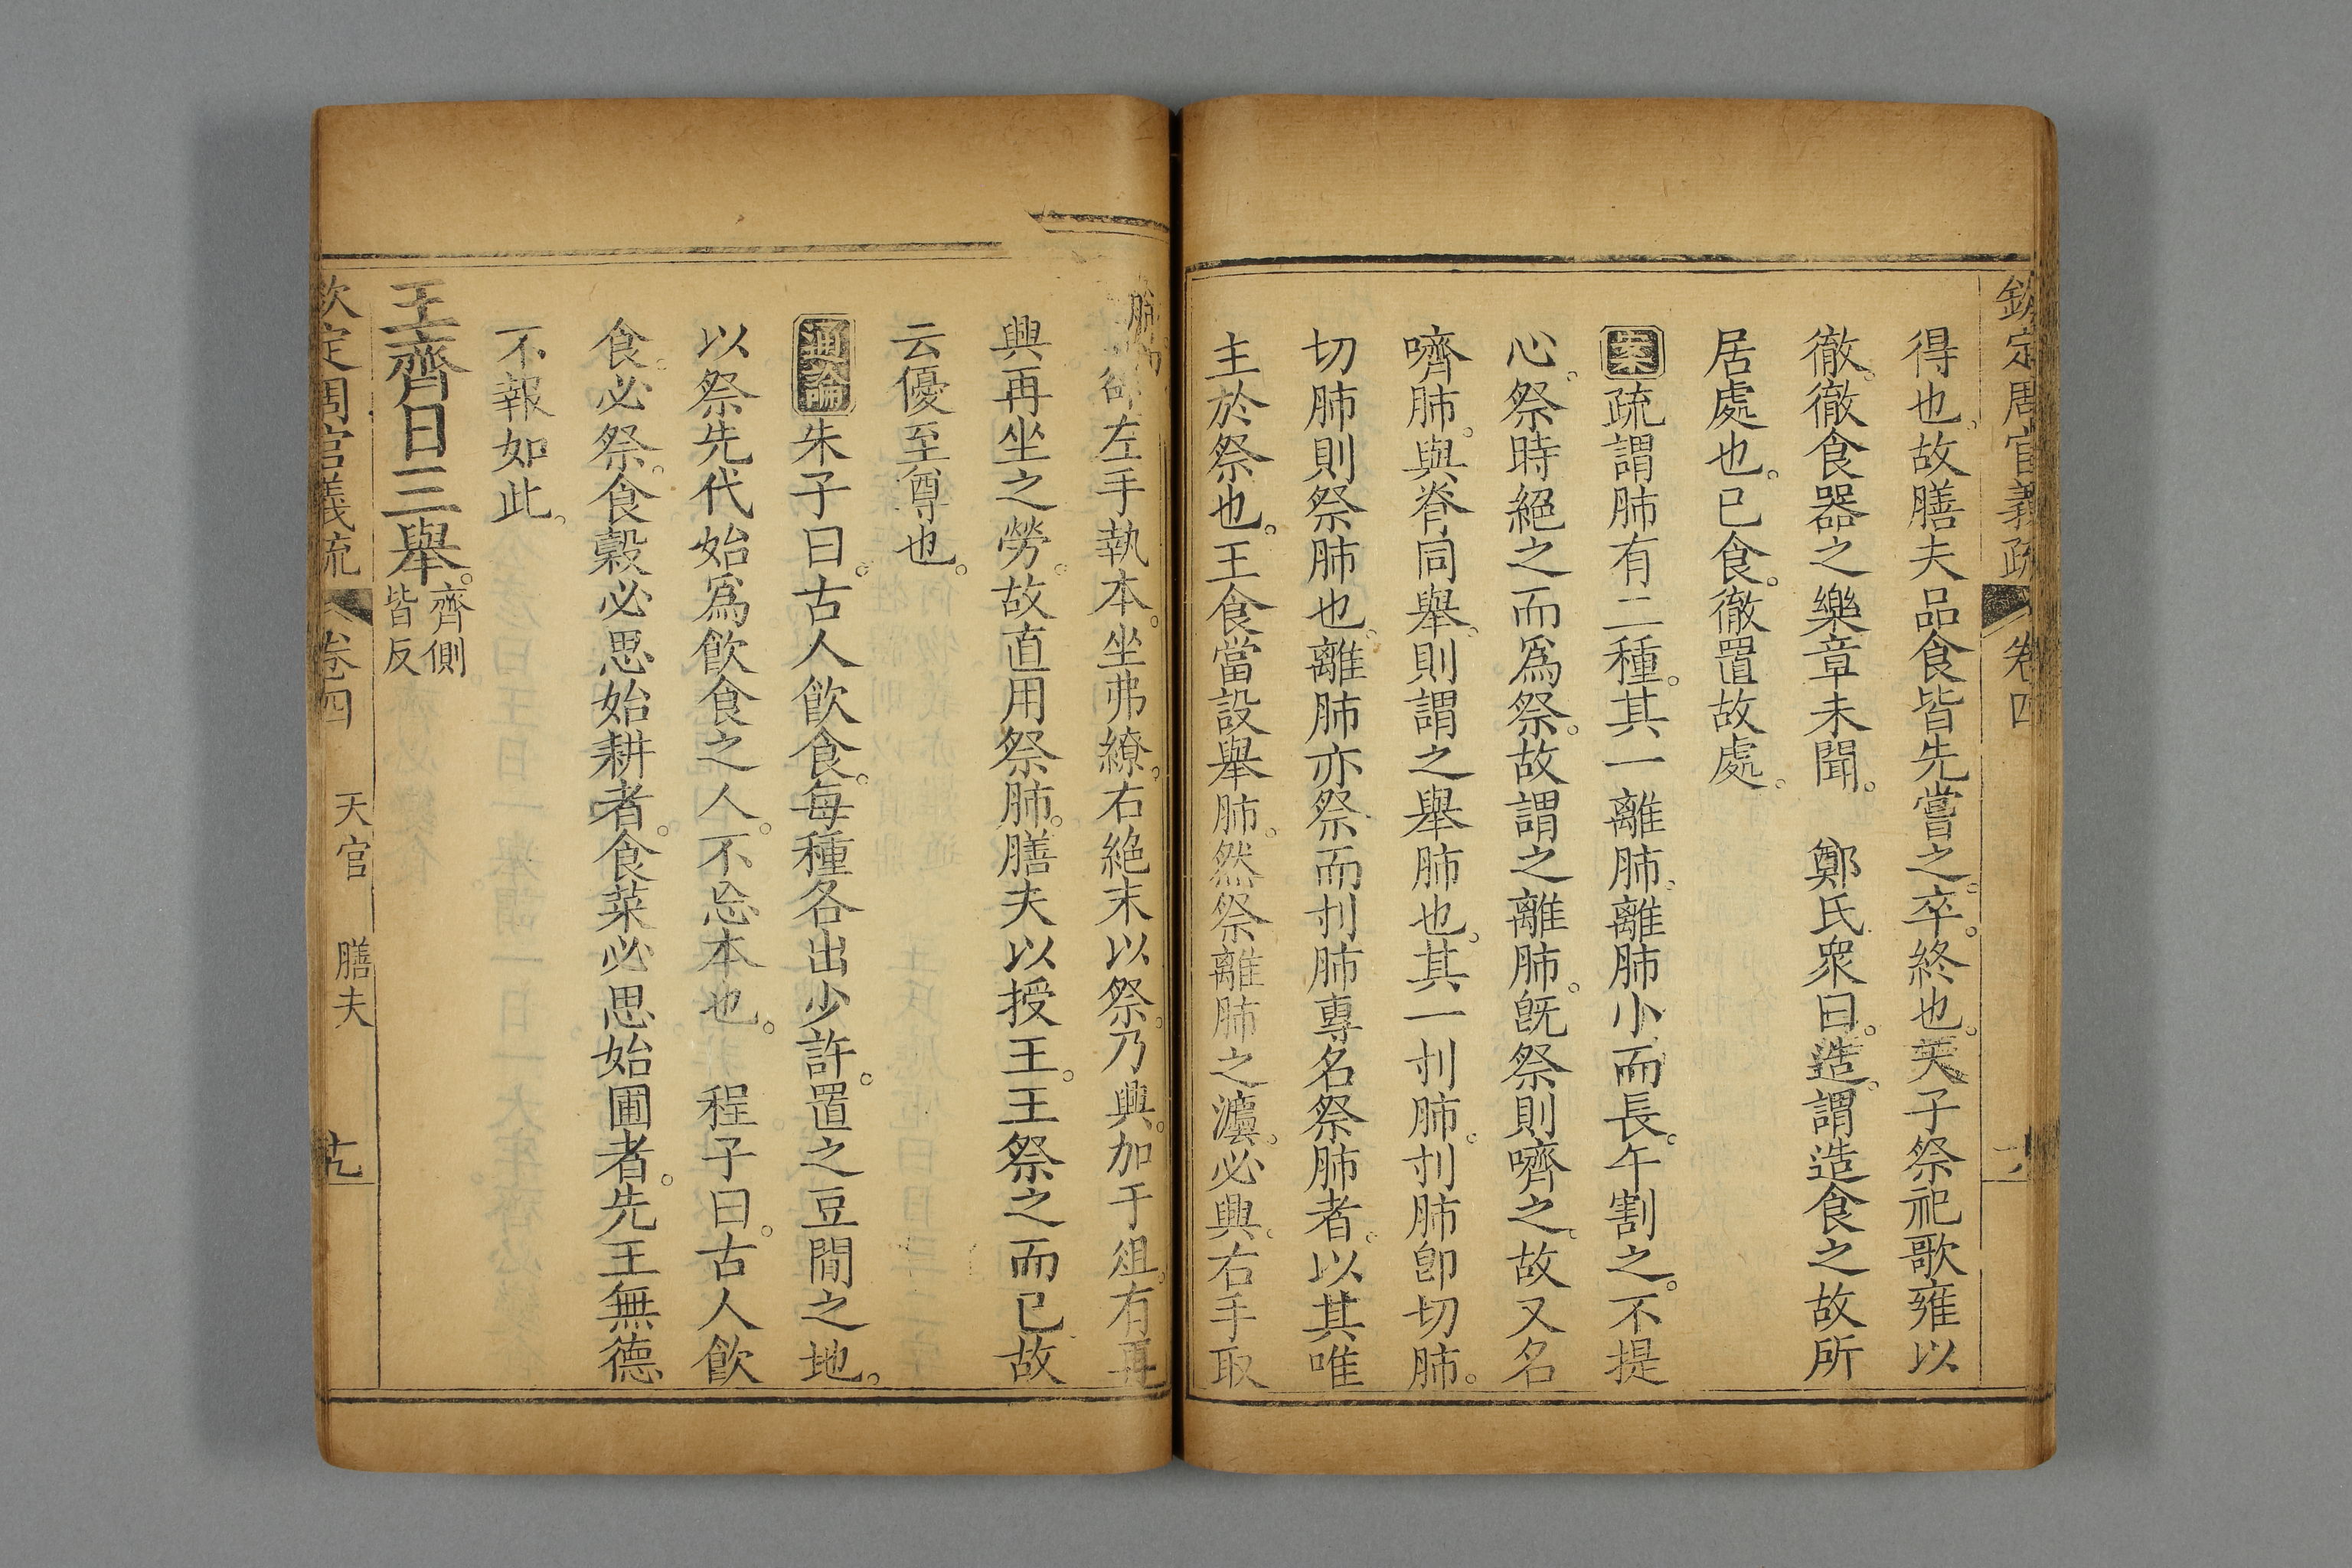 欽定周官義疏 卷四
得也故膳夫品食皆先嘗之。卒。終也。天子祭祀歌雍以
徹。徹食器之樂章未聞。 鄭氏衆曰。造。謂造食之故所
居處也。已食。徹置故處。
案疏謂肺有二種。其一離肺。離肺小而長。午割之。不提
心。祭時絕之而爲祭。故謂之離肺。旣祭則嚌之。故又名
嚌肺。與脊同舉。則謂之舉肺也。其一刌肺。刌肺卽切肺。
切肺則祭肺也。離肺亦祭而刌肺專名祭肺者。以其唯
主於祭也。王食當設舉肺。然祭離肺之灋。必興。右手取
肺。卻左手執本。坐弗繚。右絶末以祭。乃興。加于俎。有再
興再坐之勞。故直用祭肺。膳夫以授王。王祭之而已故
云優至尊也。
通論朱子曰。古人飮食。每種各出少許。置之豆閒之地。
以祭先代始爲飮食之人。不忘本也。 程子曰。古人飮
食。必祭。食穀必思始耕者。食菜必思始圃者。先王無德
不報如此。
王齊日三舉。齊側皆反
欽定周官義疏 卷四 天官 膳夫 十九